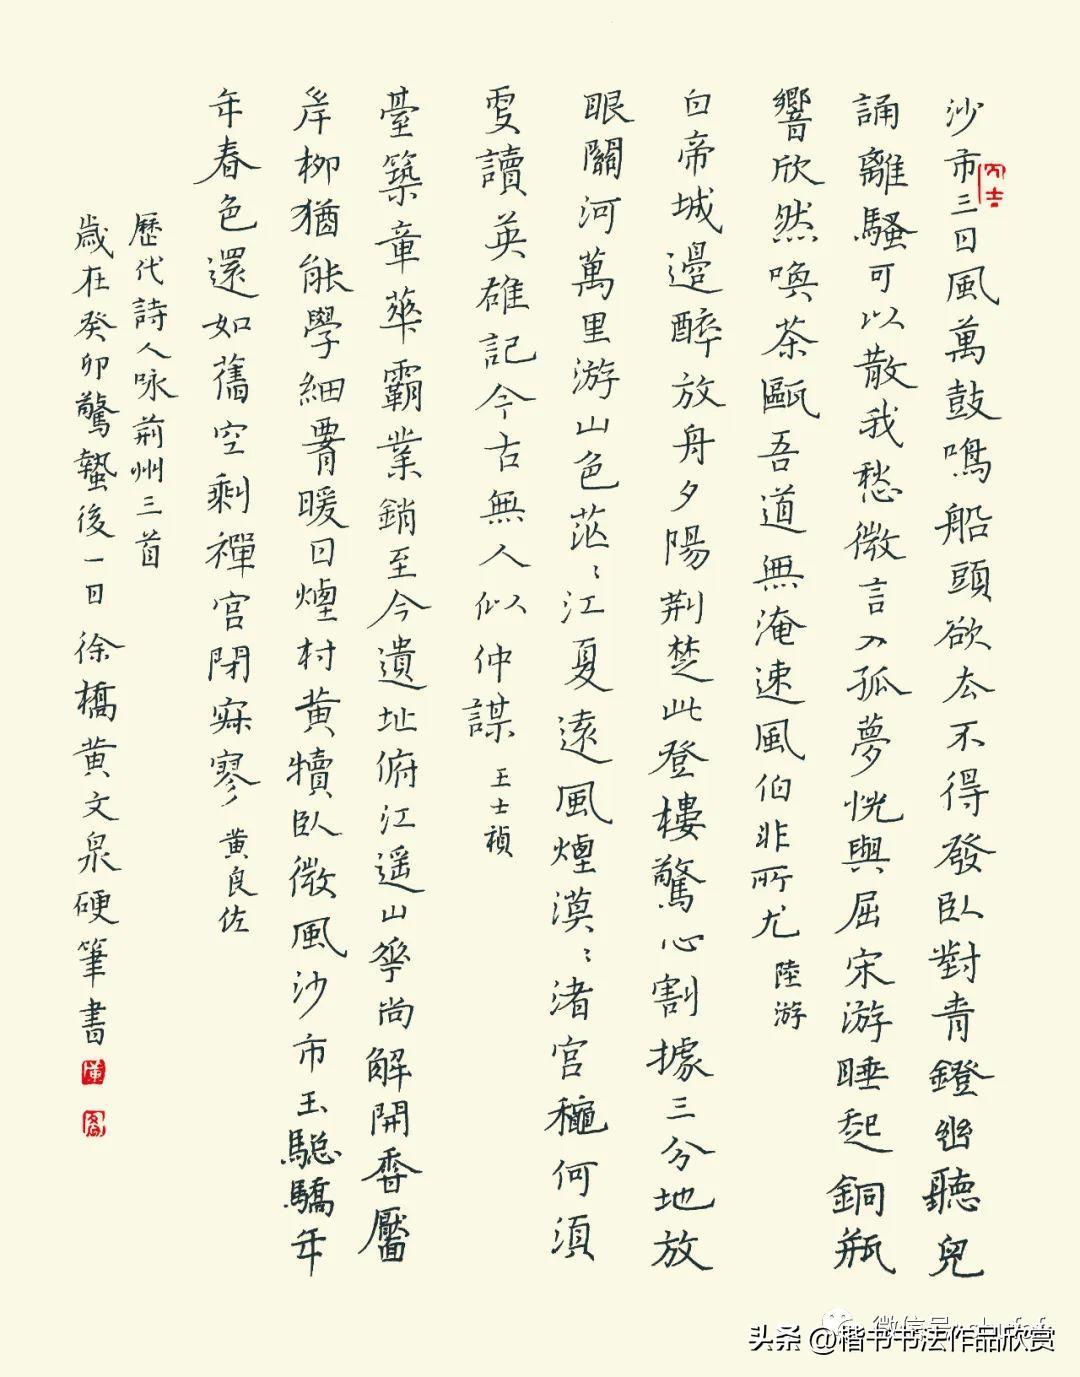 沙市三日風萬鼓鳴船頭欲去不得發臥對青鐙幽聽兒
誦離騷可以散我愁微言入孤夢恍與屈宋游睡起銅瓶
響欣然喚茶甌吾道無淹速風伯非所尤 陸游
白帝城邊醉放舟夕陽荆楚此登樓驚心割據三分地放
眼關河萬里游山色茫〻江夏遠風煙漠〻渚宮穐何須
更讀英雄記今古無人似仲謀 王士禎
臺築章華霸業銷至今遺址俯江遥山華尚解開香靨
岸柳猶能學細腰暖日煙村黄犢臥微風沙市玉驄驕年
年春色還如舊空剩禪宫閉寂寥 黄良佐
歷代詩人咏荊州三首
歲在癸卯驚蟄後一日徐橋黄文泉硬筆書
头条 @楷书书法作品欣赏